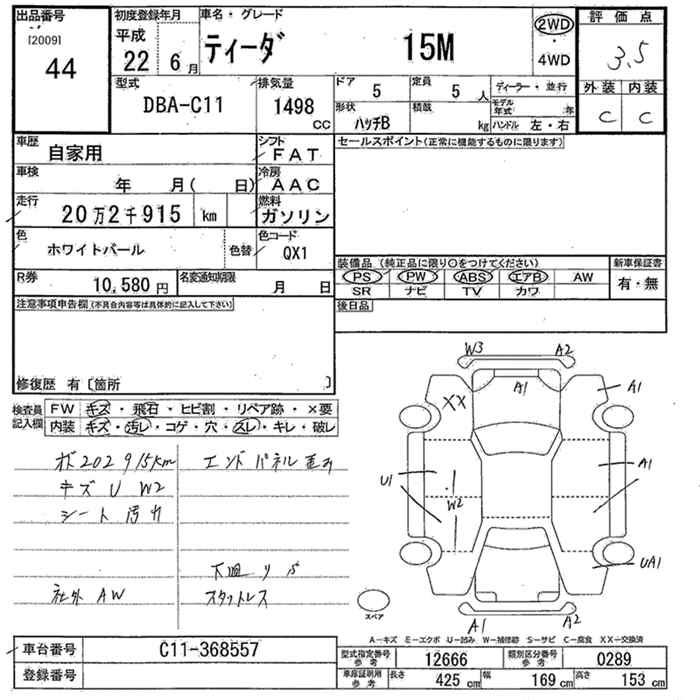 出品番号
[2009]
44
初度登録年月
平成
22年6月
車名・グレード
ティーダ 15M
2WD
・
4WD
評価点
3.5
外装 内装
C C
型式
DBA-C11
排気量
1498 CC
ドア 5
定員 5人
ディーラー・並行
形状 ハッチB
積載 kg
モデル年式 年
ハンドル 左・右
車歴 自家用
シフト FAT
セールスポイント(正常に機能するものに限ります)
車検 年 月( 日)
冷房 AAC
走行 20万2千915 km
燃料 ガソリン
色 ホワイトパール
色替
色コード QX1
装備品(純正品に限り○をつけてください)
新車保証書
PS PW ABS エアB AW
SR ナビ TV カワ
有・無
R券 10,580円
名変通知期限 月 日
後日品
注意事項申告欄(不具合内容等は具体的に記入して下さい)
修復歴 有〔箇所 〕
検査員記入欄
FW キズ・飛石・ヒビ割・リペア跡・×要
内装 キズ・汚レ・コゲ・穴・スレ・キレ・破レ
202915km エンドパネル
キズ U W2
シート汚れ
社外 AW
スタットレス
W3 A2
XX A1 A1
U1 W2 A1
UA1
A1 A2
スペア
A-キズ E-エクボ U-凹み W-補修跡 S-サビ C-腐食 XX-交換済
車台番号 C11-368557
登録番号
型式指定番号 参考 12666
類別区分番号 参考 0289
車庫証明用 参考 長さ 425 cm 幅 169 cm 高さ 153 cm